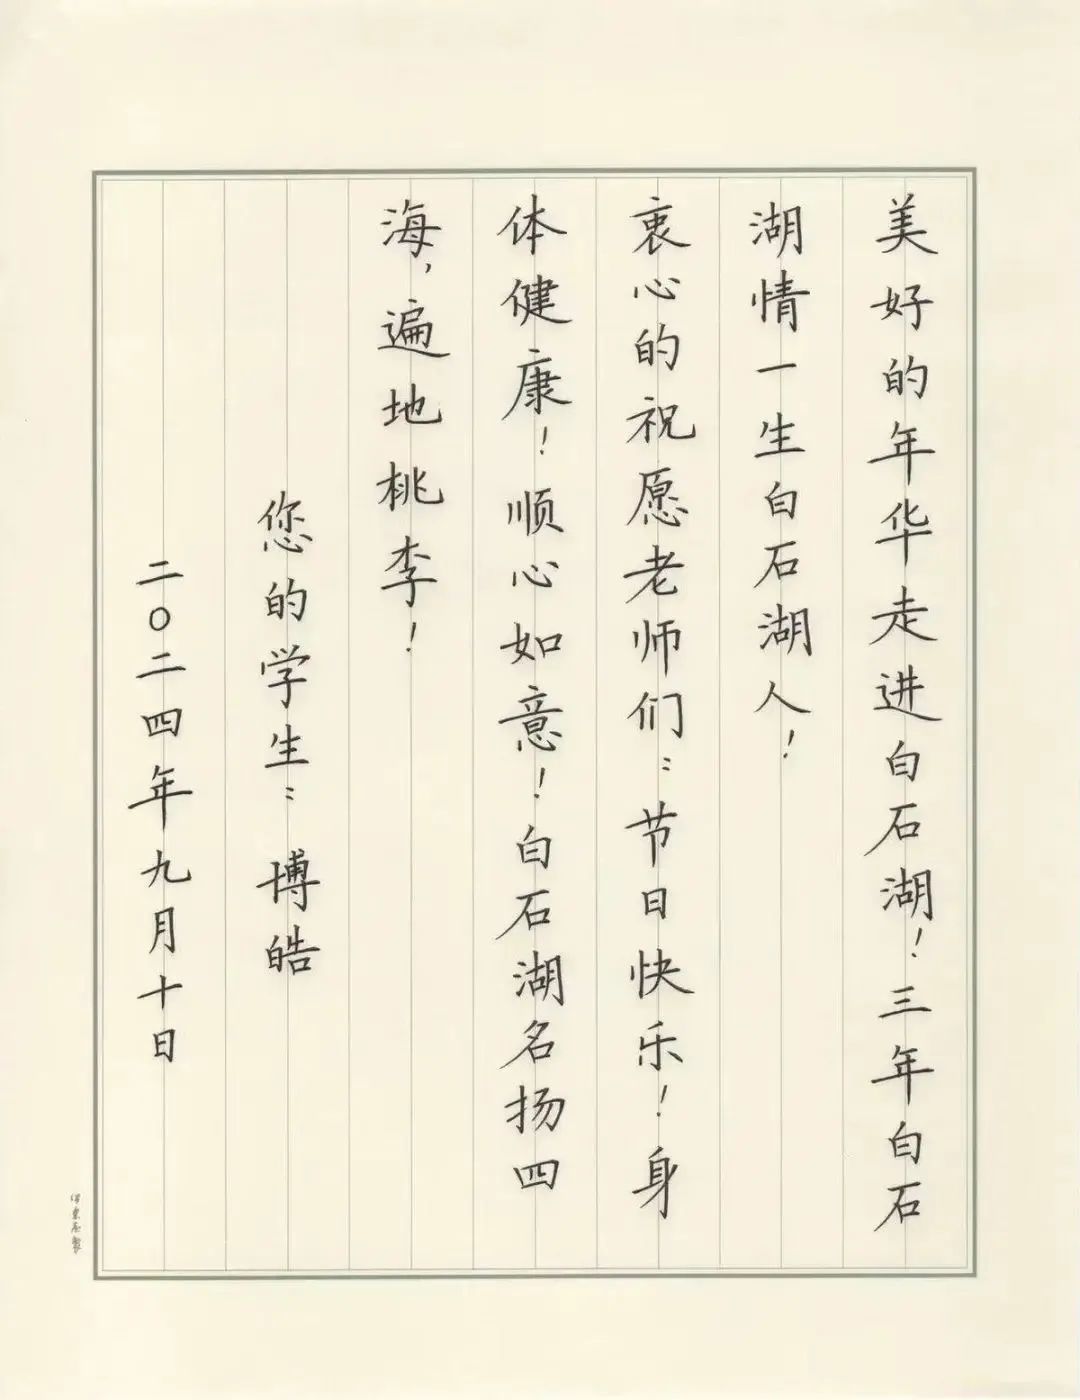 美好的年华走进白石湖！三年白石
湖情一生白石湖人！
衷心的祝愿老师们：节日快乐！身
体健康！顺心如意！白石湖名扬四
海，遍地桃李！
您的学生：博皓
二〇二四年九月十日
伊東屋製